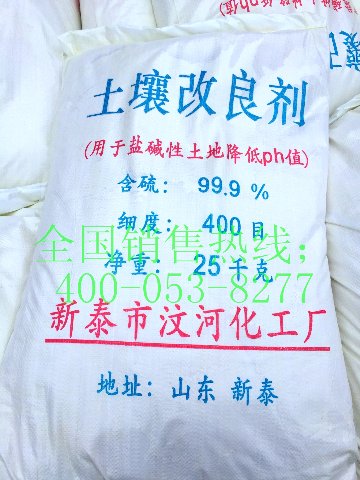 土壤改良剂
(用于盐碱性土地降低ph值)
含硫: 99.9 %
细度: 400 目
全国销售热线;
净重: 25 千克
400-053-8277
新泰市汶河化工厂
地址: 山东 新泰